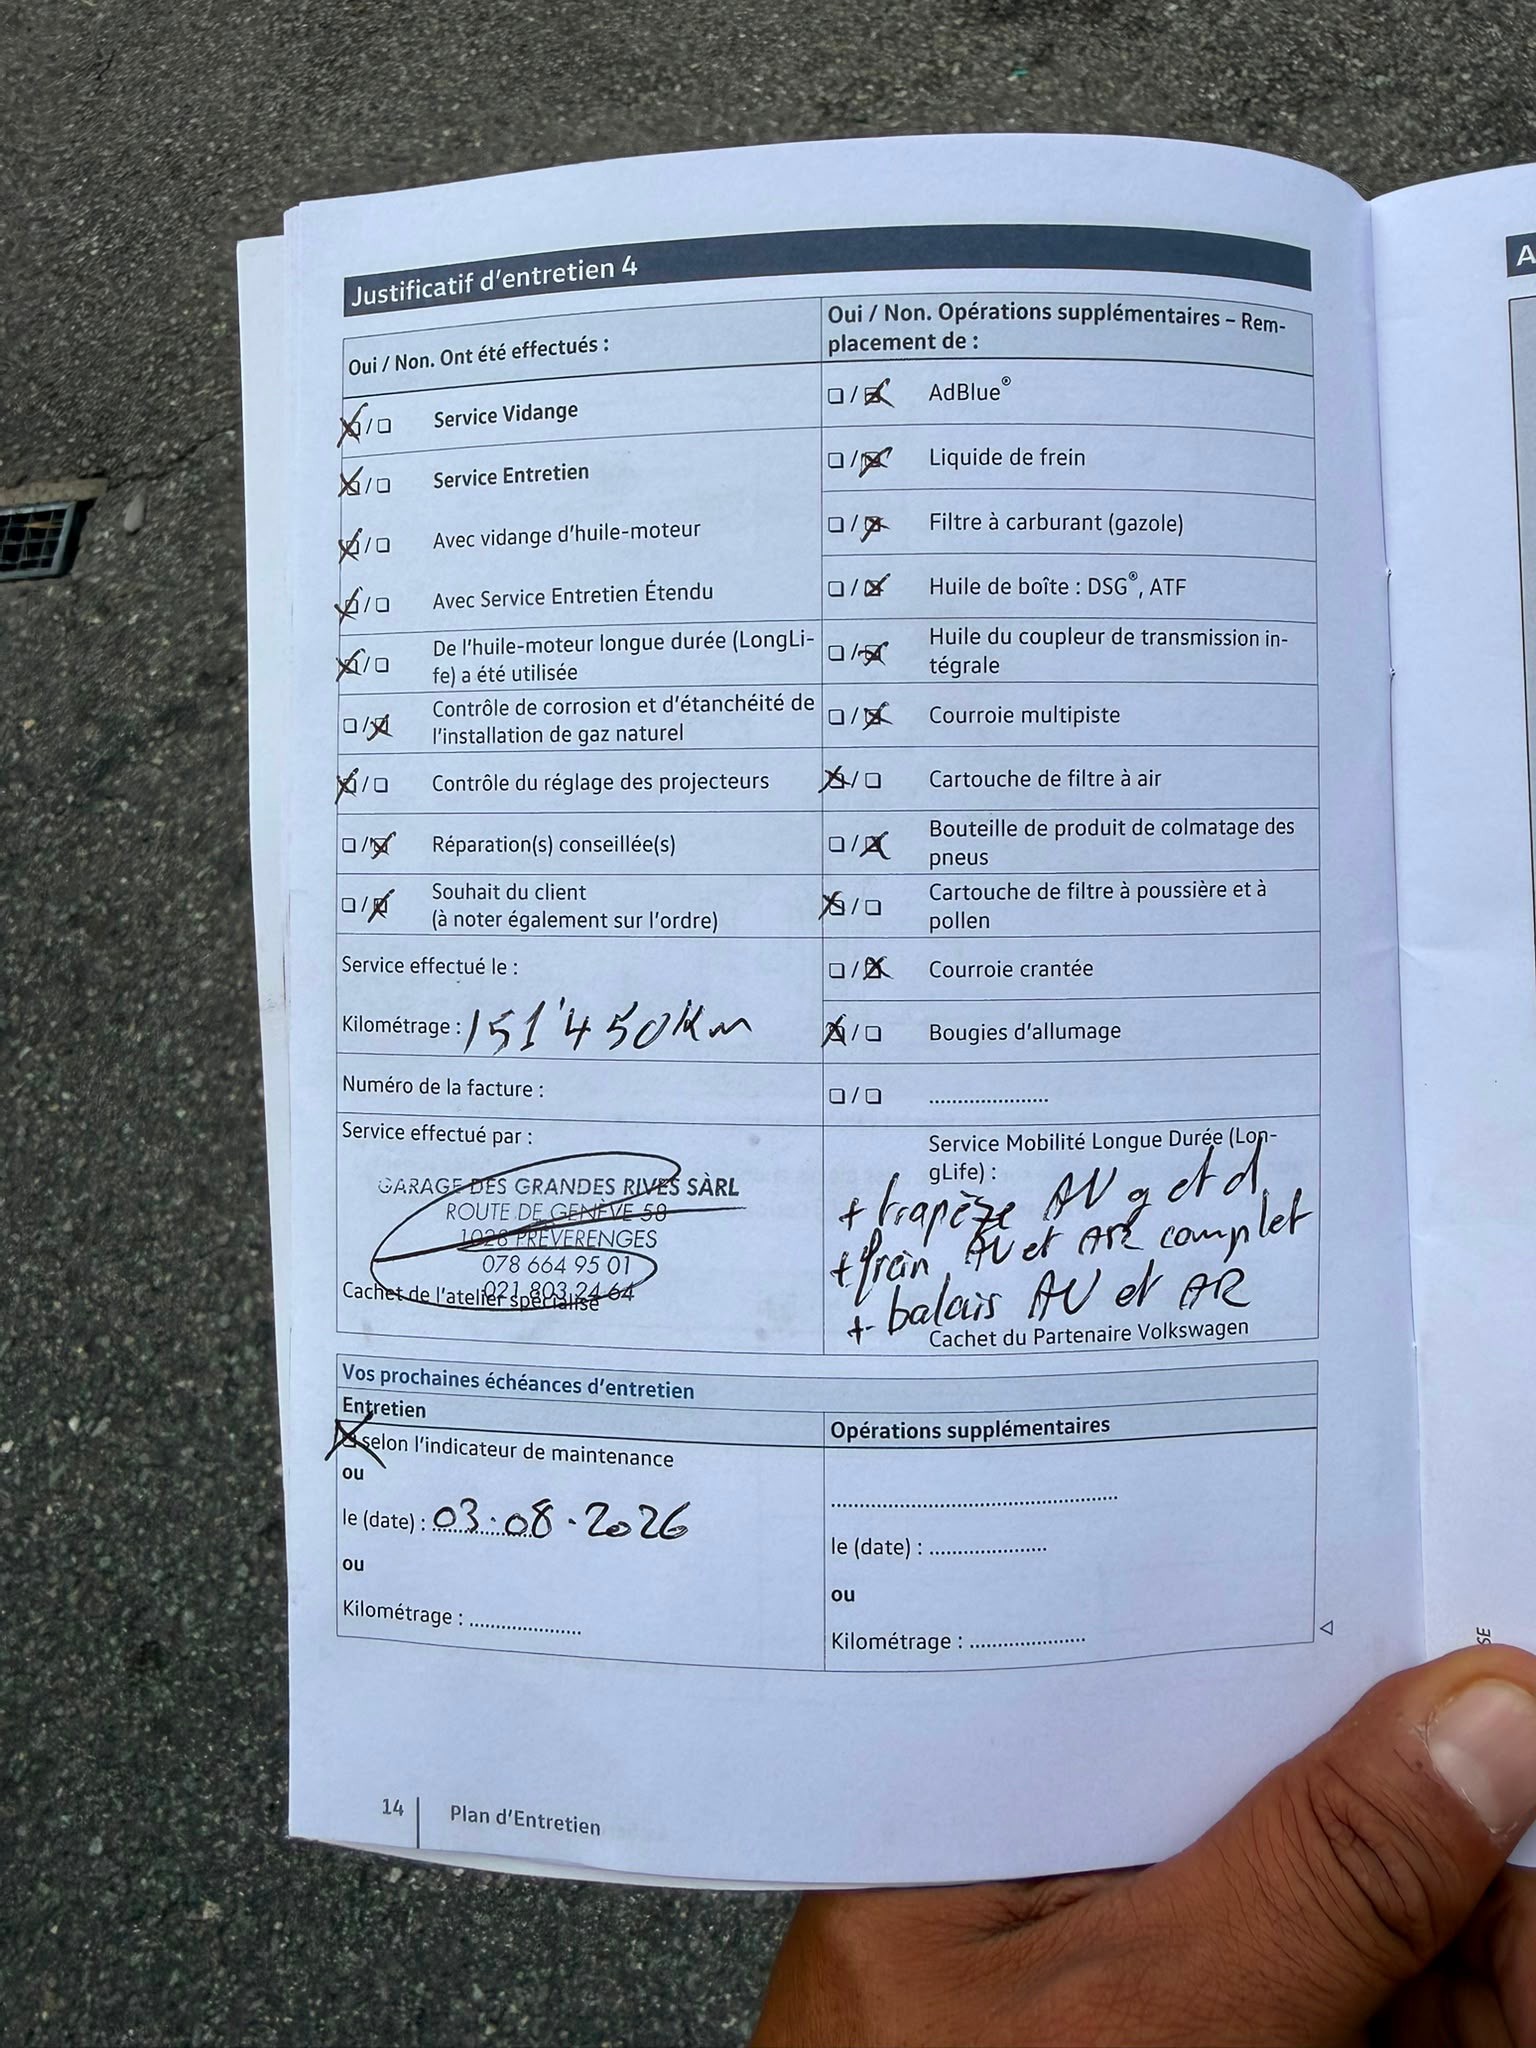 Justificatif d'entretien 4
Oui / Non. Ont été effectués :
☒ / ☐ Service Vidange
☒ / ☐ Service Entretien
☒ / ☐ Avec vidange d'huile-moteur
☒ / ☐ Avec Service Entretien Étendu
☒ / ☐ De l'huile-moteur longue durée (LongLi-
fe) a été utilisée
☐ / ☒ Contrôle de corrosion et d'étanchéité de
l'installation de gaz naturel
☒ / ☐ Contrôle du réglage des projecteurs
☐ / ☒ Réparation(s) conseillée(s)
☐ / ☒ Souhait du client
(à noter également sur l'ordre)
Service effectué le :
Kilométrage : 151'450 Km
Numéro de la facture :
Service effectué par :
GARAGE DES GRANDES RIVES SÀRL
ROUTE DE GENÈVE 58
1028 PRÉVERENGES
078 664 95 01
021 803 24 64
Cachet de l'atelier spécialisé
Oui / Non. Opérations supplémentaires – Rem-
placement de :
☐ / ☒ AdBlue®
☐ / ☒ Liquide de frein
☐ / ☒ Filtre à carburant (gazole)
☐ / ☒ Huile de boîte : DSG®, ATF
☐ / ☒ Huile du coupleur de transmission in-
tégrale
☐ / ☒ Courroie multipiste
☒ / ☐ Cartouche de filtre à air
☐ / ☒ Bouteille de produit de colmatage des
pneus
☒ / ☐ Cartouche de filtre à poussière et à
pollen
☐ / ☒ Courroie crantée
☒ / ☐ Bougies d'allumage
☐ / ☐ .....................
Service Mobilité Longue Durée (Lon-
gLife) :
+ trapèze AV g et d
+ frein AV et AR complet
+ balais AV et AR
Cachet du Partenaire Volkswagen
Vos prochaines échéances d'entretien
Entretien
☒ selon l'indicateur de maintenance
ou
le (date) : 03.08.2026
ou
Kilométrage : ....................
Opérations supplémentaires
..................................................
le (date) : .....................
ou
Kilométrage : ....................
14
Plan d'Entretien
A
SE